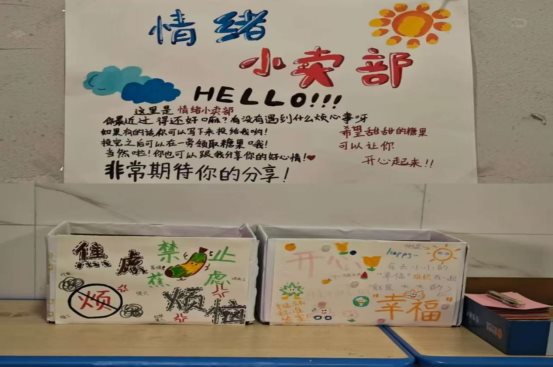 情绪
小卖部
HELLO!!!
这里是 情绪小卖部
你最近过得还好嘛？有没有遇到什么烦心事呀
如果有的话你可以写下来投给我哟！
投完之后可以在一旁领取糖果哦！
当然啦！你也可以跟我分享你的好心情！
非常期待你的分享！
希望甜甜的糖果
可以让你
开心起来！！
焦虑
禁止
蕉虑
烦
烦恼
开心
happy
"幸福"